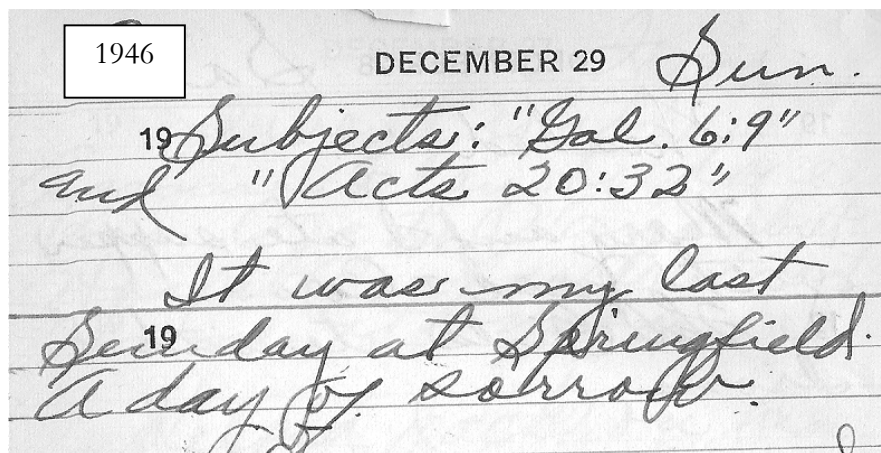 1946
DECEMBER 29 Sun.
19 Subjects: "Gal. 6:9"
and "Acts 20:32"
It was my last
19
Sunday at Springfield.
A day of sorrow.